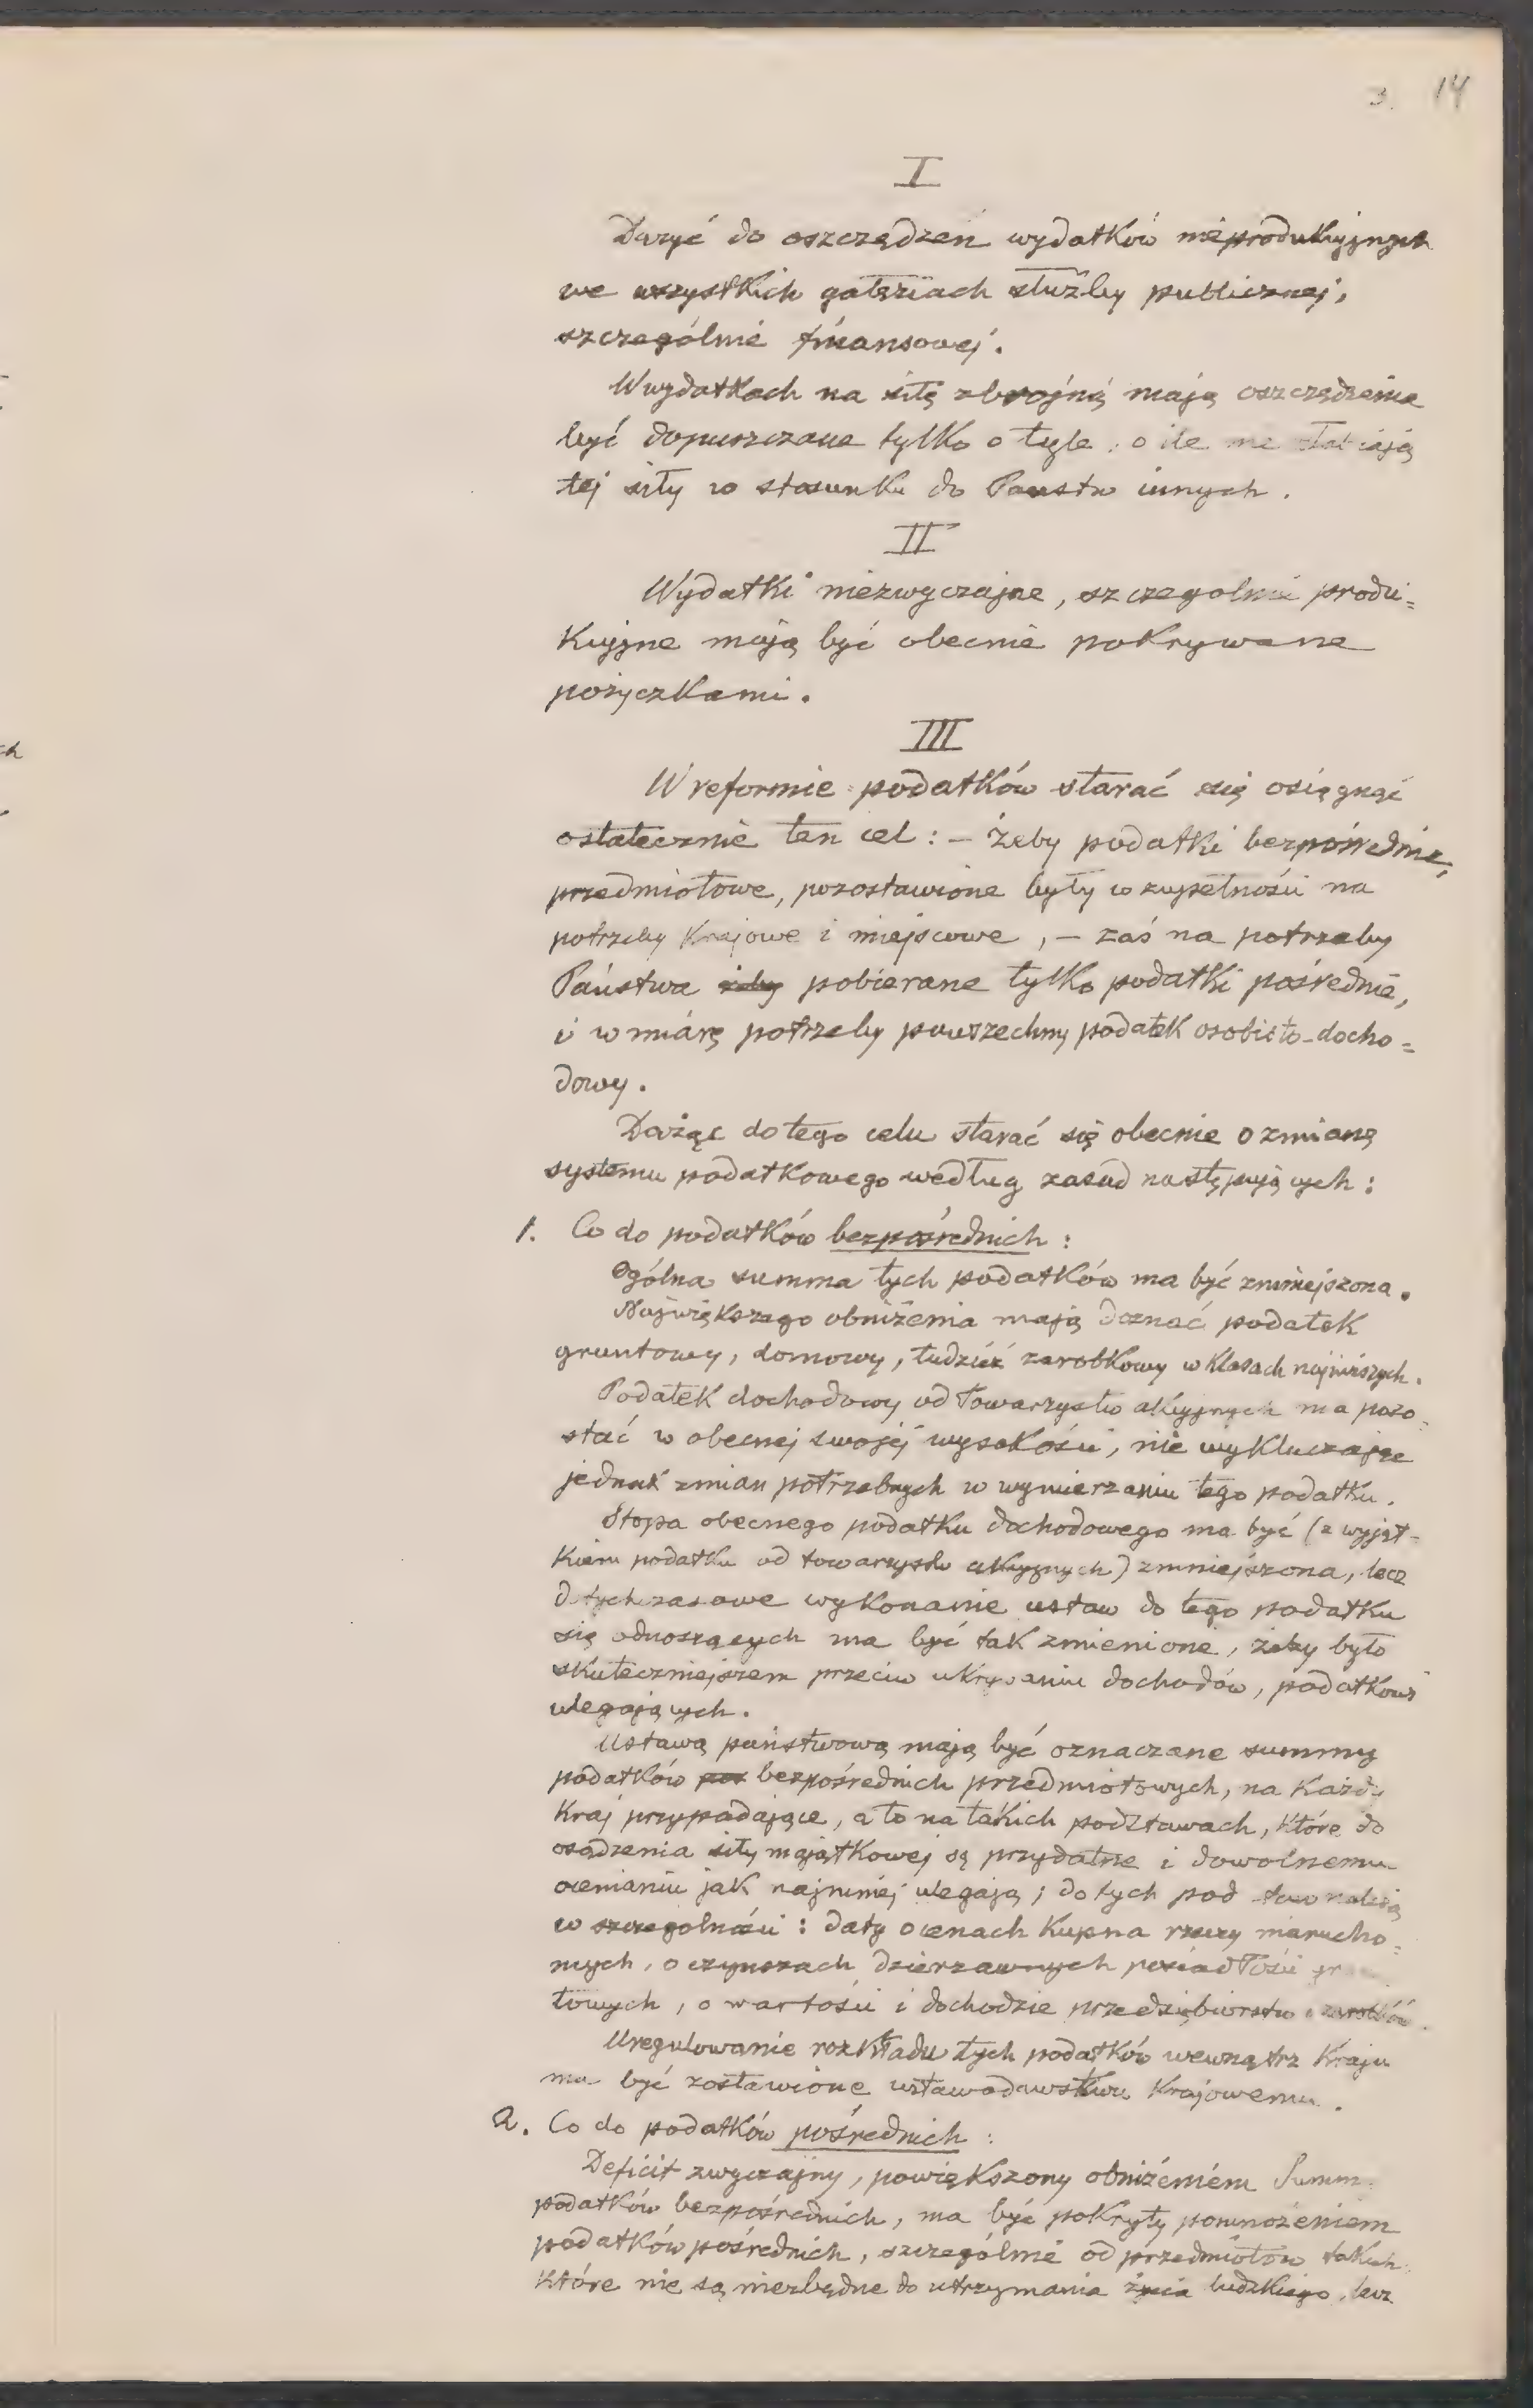 3. 14
I
Dążyć do oszczędzeń wydatków nieprodukcyjnych
we wszystkich gałęziach służby publicznej,
szczególnie finansowej.
W wydatkach na siłę zbrojną mają oszczędzenia
być dopuszczane tylko o tyle, o ile nie słabiają
tej siły w stosunku do Państw innych.
II
Wydatki niezwyczajne, szczególnie produ=
kcyjne mają być obecnie pokrywane
pożyczkami.
III
W reformie podatków starać się osięgnąć
ostatecznie ten cel: – żeby podatki bezpośrednie,
przedmiotowe, pozostawione były w zupełności na
potrzeby Krajowe i miejscowe, – zaś na potrzeby
Państwa żeby pobierane tylko podatki pośrednie,
i w miarę potrzeby powszechny podatek osobisto-docho=
dowy.
Dążąc do tego celu starać się obecnie o zmianę
systemu podatkowego według zasad następujących:
1. Co do podatków bezpośrednich:
Ogólna summa tych podatków ma być zmniejszona.
Największego obniżenia mają doznać podatek
gruntowy, domowy, tudzież zarobkowy w klasach najniższych.
Podatek dochodowy od Towarzystw akcyjnych ma pozo=
stać w obecnej swojej wysokości, nie wykluczając
jednak zmian potrzebnych w wymierzaniu tego podatku.
Stopa obecnego podatku dochodowego ma być (z wyjąt-
kiem podatku od towarzystw akcyjnych) zmniejszona, lecz
dotychczasowe wykonanie ustaw do tego podatku
się odnoszących ma być tak zmienione, żeby było
skuteczniejszem przeciw ukrywaniu dochodów, podatkowi
ulegających.
Ustawą państwową mają być oznaczane summy
podatków pos bezpośrednich przedmiotowych, na każdy
Kraj przypadające, a to na takich podstawach, które do
osądzenia siły majątkowej są przydatne i dowolnemu
ocenianiu jak najmniej ulegają; do tych podstaw należą
w szczególności: daty o cenach kupna rzeczy nierucho=
mych, o czynszach dzierzawnych posiadłości grun
towych, o wartości i dochodzie przedsiębiorstw i zarobków.
Uregulowanie rozkładu tych podatków wewnątrz Kraju
ma być zostawione ustawodawstwu Krajowemu.
2. Co do podatków pośrednich:
Deficit zwyczajny, powiększony obniżeniem Summ
podatków bezpośrednich, ma być pokryty pomnożeniem
podatków pośrednich, szczególnie od przedmiotów takich
które nie są niezbędne do utrzymania życia ludzkiego, lecz